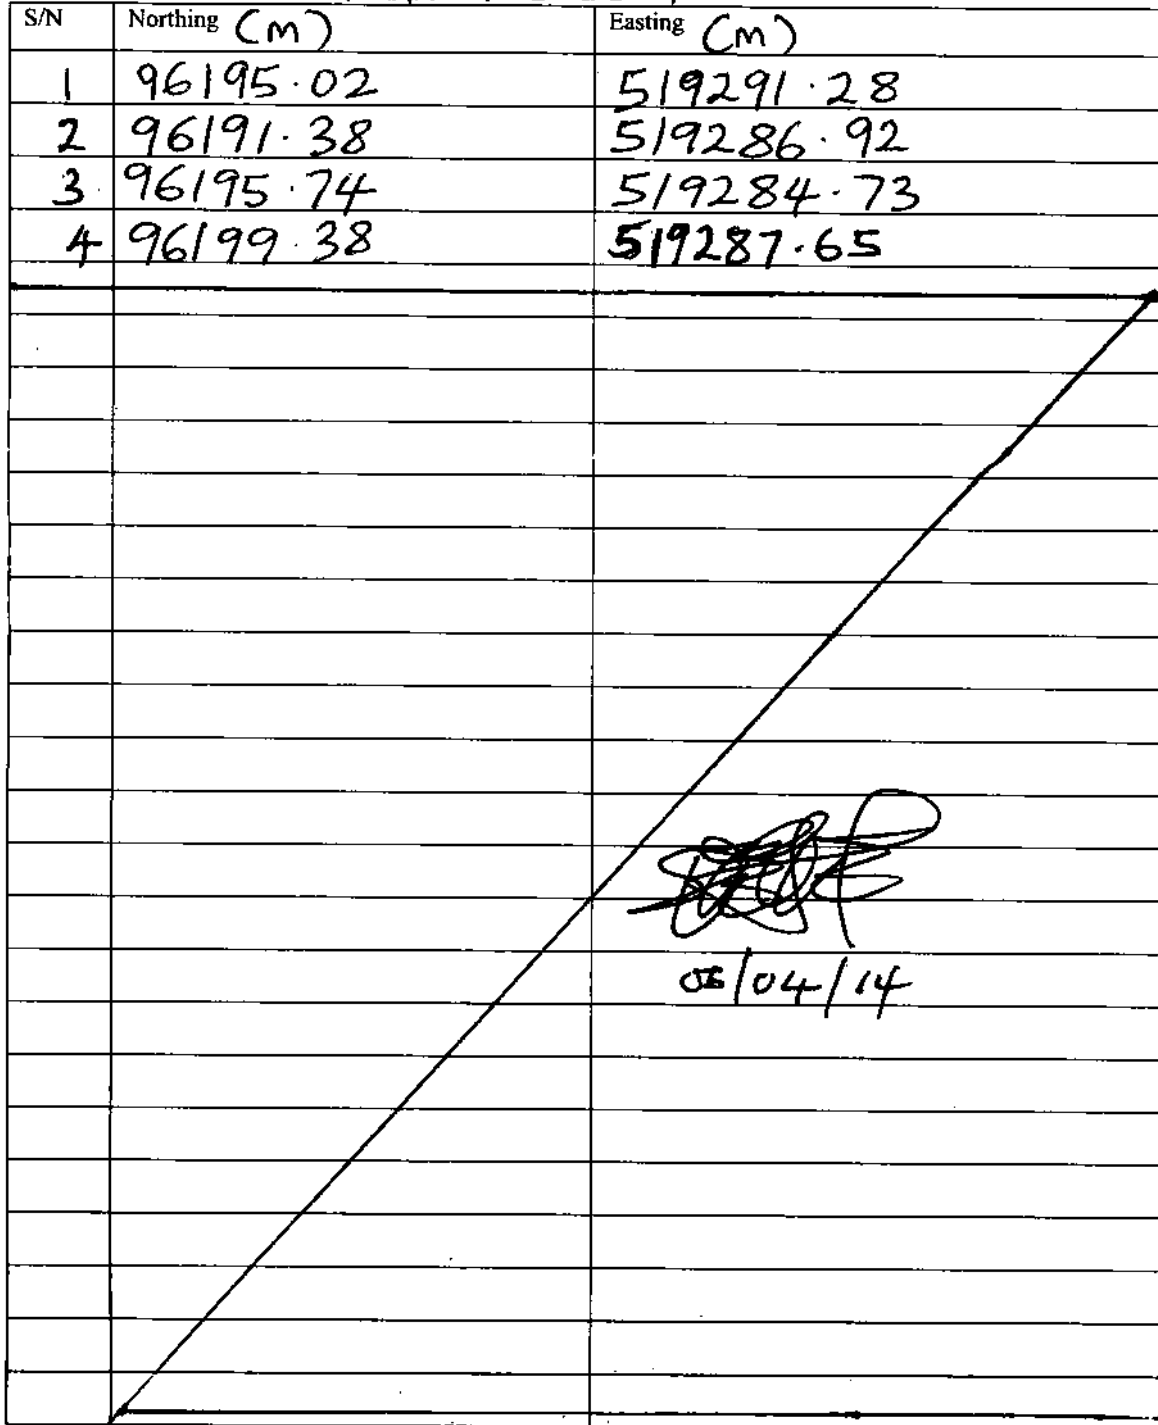 S/N Northing (m) Easting (m)
1 96195.02 519291.28
2 96191.38 519286.92
3 96195.74 519284.73
4 96199.38 519287.65
/04/14